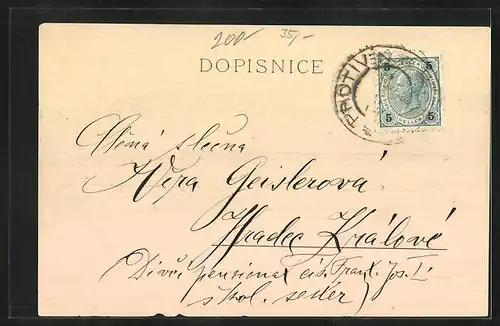 200- 35/-
DOPISNICE
PROTIVÍN
5 5
5 HELLER 5
Ctěná slečna
Věra Geislerová
Hradec Králové
Dívčí pensionat cís. Frant. Jos. I.
škol. sester